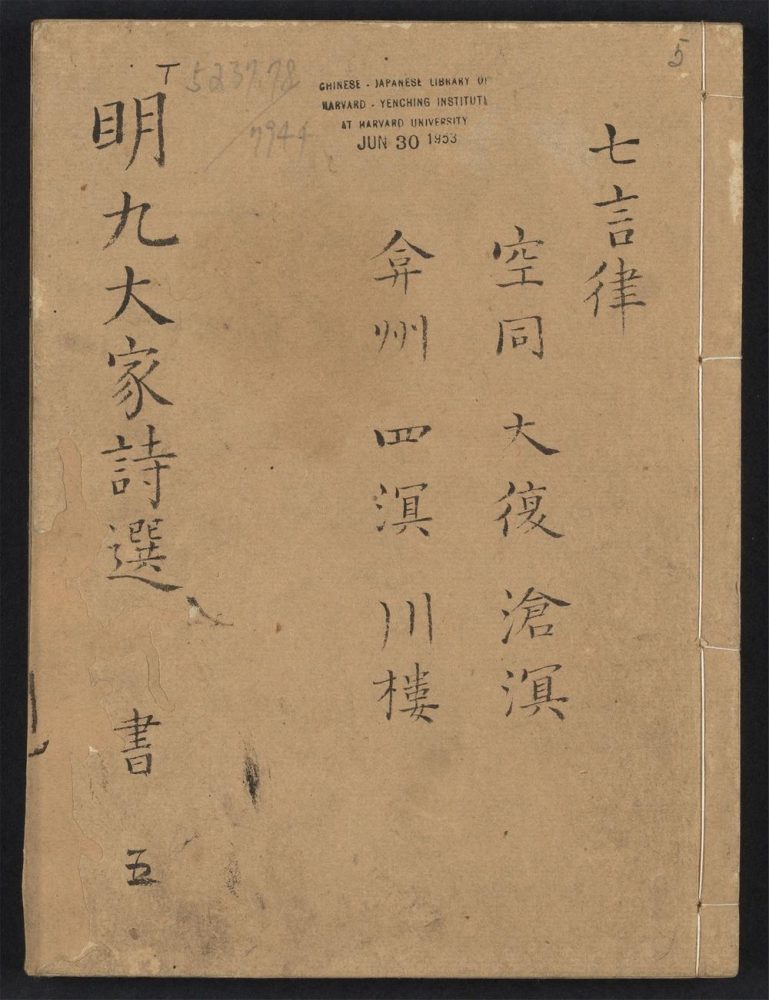 5
七言律
空同 大復 滄溟
弇州 四溟 川樓
CHINESE - JAPANESE LIBRARY OF
HARVARD - YENCHING INSTITUTE
AT HARVARD UNIVERSITY
JUN 30 1953
T 5237.78
7944
明九大家詩選 書 五